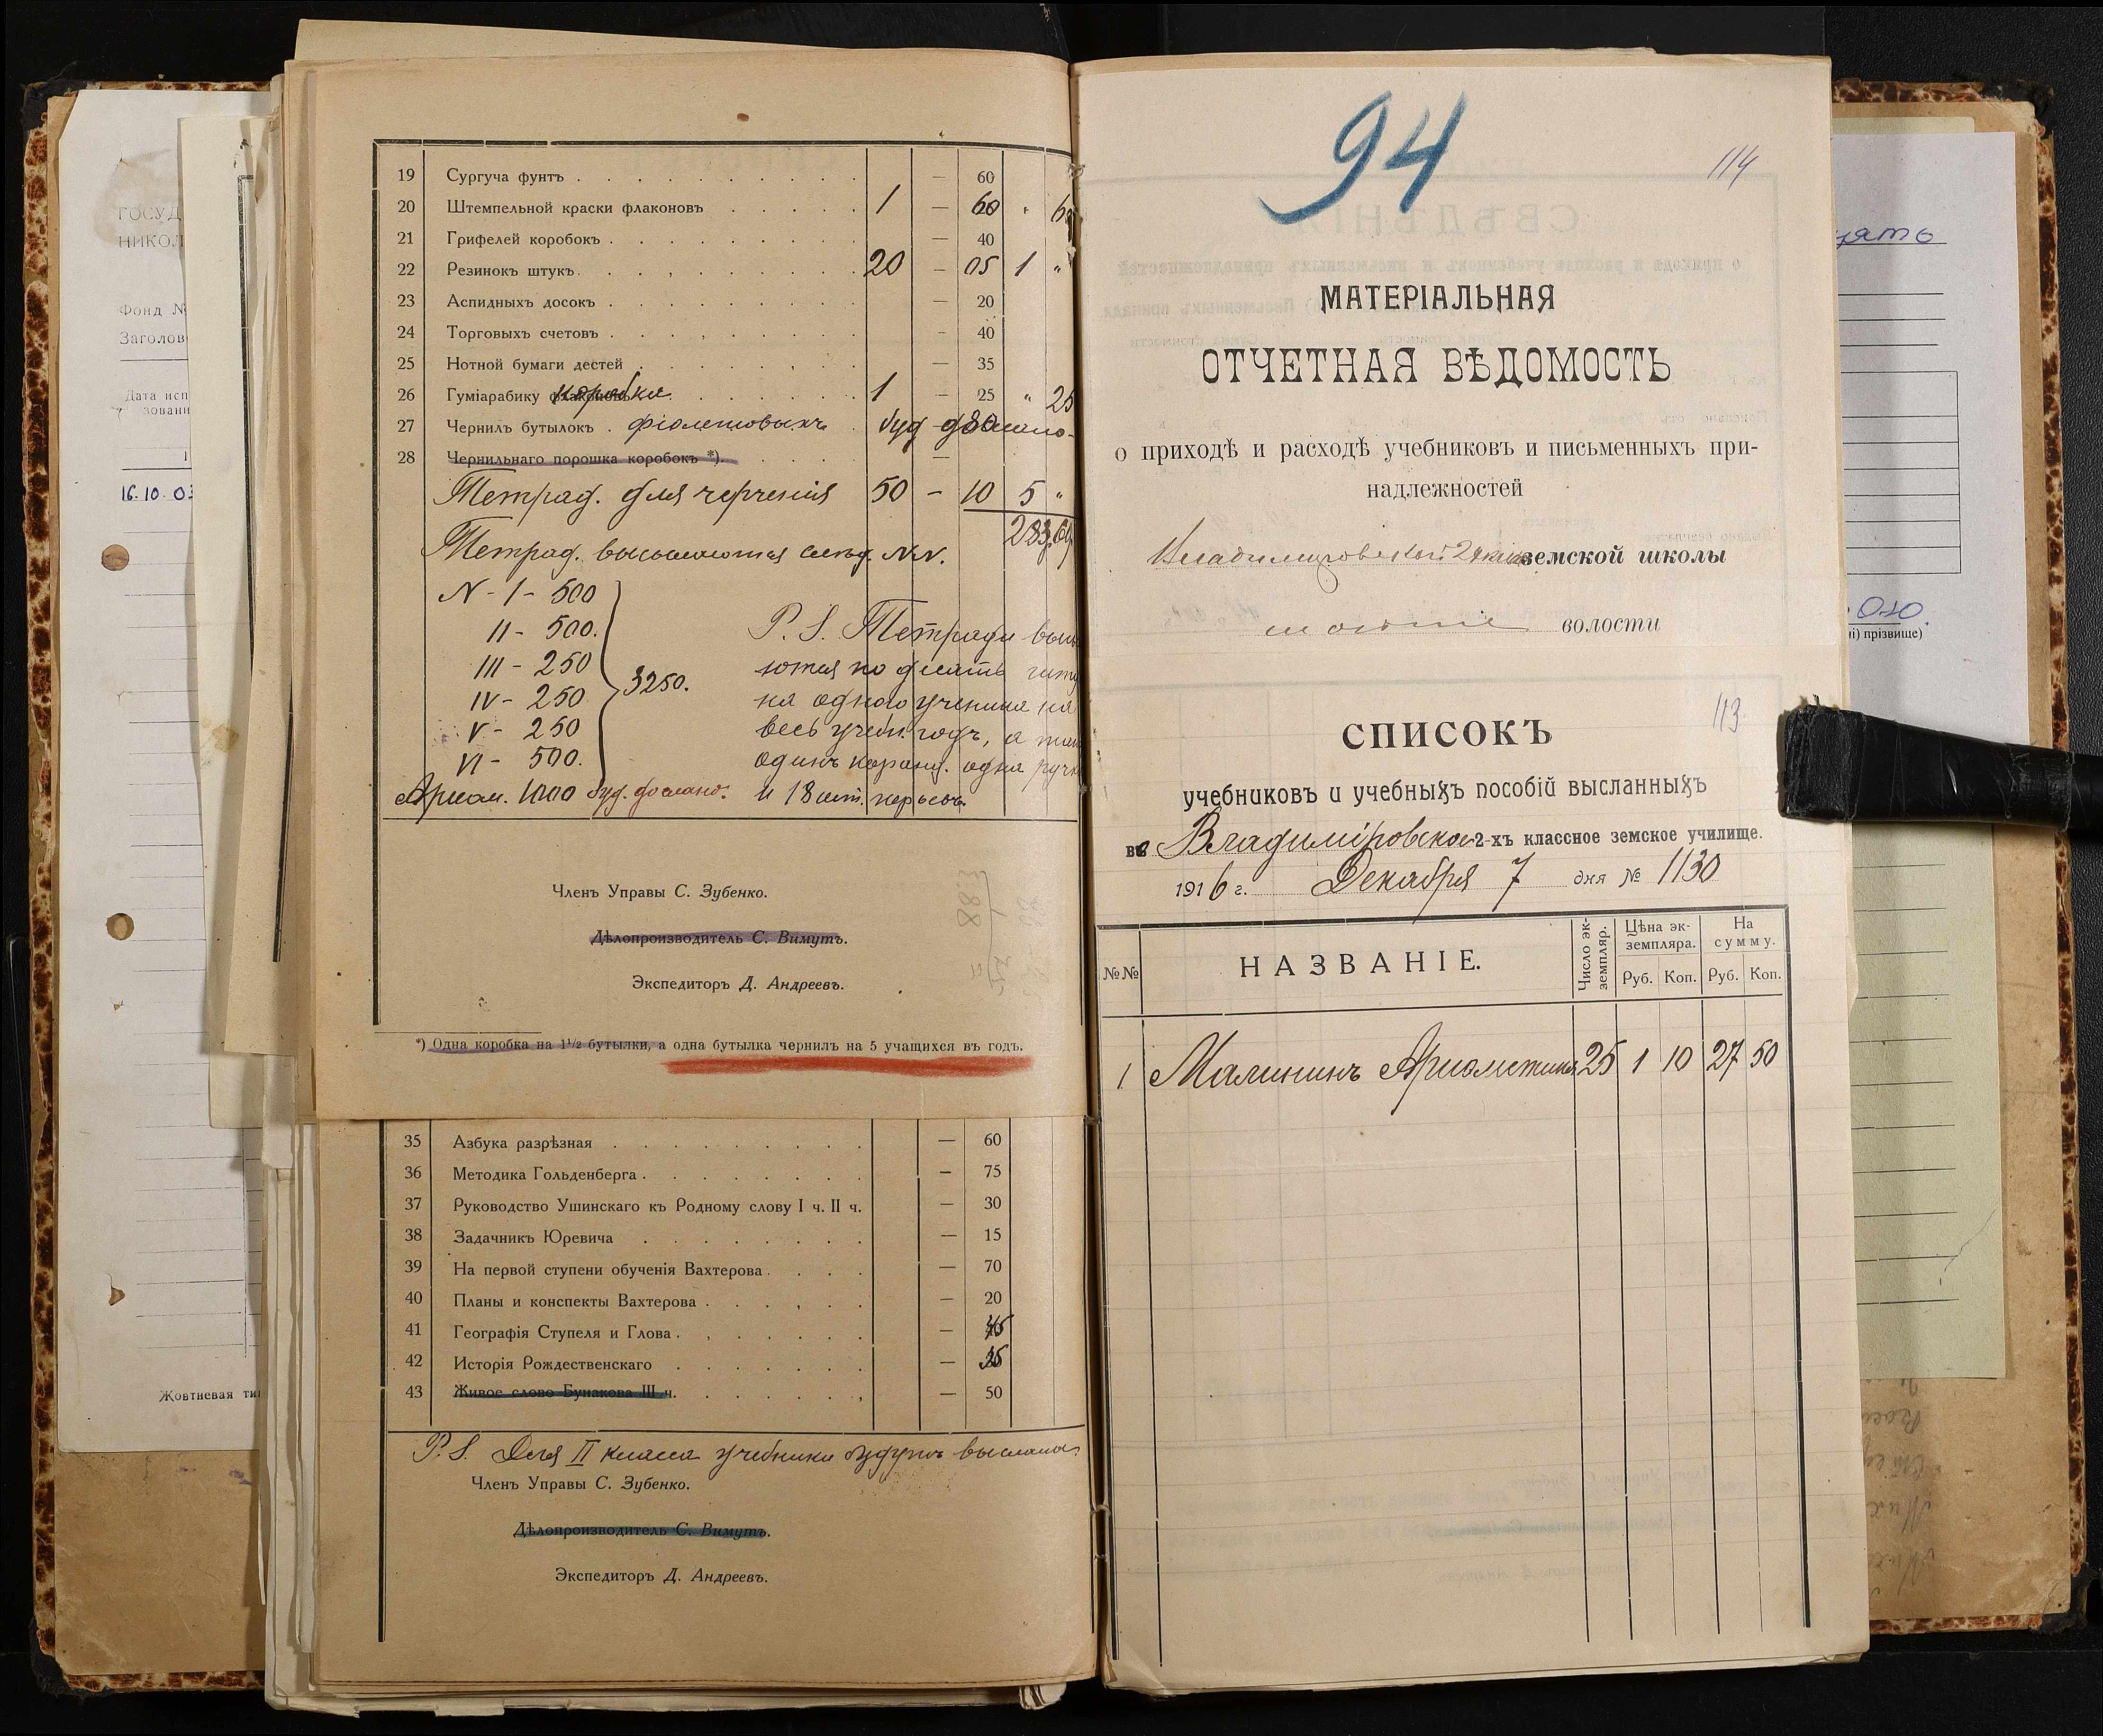 19 Сургуча фунтъ — 60
20 Штемпельной краски флаконовъ 1 — 60 „ 60
21 Грифелей коробокъ — 40
22 Резинокъ штукъ 20 — 05 1 „
23 Аспидныхъ досокъ — 20
24 Торговыхъ счетовъ — 40
25 Нотной бумаги дестей — 35
26 Гуміарабику коробка 1 — 25 „ 25
27 Чернилъ бутылокъ фіолетовыхъ буд. дослано
28 Чернильнаго порошка коробокъ *) —
Тетрад. для черченія 50 — 10 5 „
Тетрад. высылаются слѣд. №№.
№ - I - 500
II - 500.
III - 250
IV - 250
V - 250
VI - 500.
3250.
Ариѳм. 1000 буд. дослано.
P. S. Тетради высы
ются по десять
на одного ученика на
весь учебн. годъ, а
одинъ каранд. одна ручк
и 18 шт. перьевъ.
Членъ Управы С. Зубенко.
Дѣлопроизводитель С. Вимутъ.
Экспедиторъ Д. Андреевъ.
*) Одна коробка на 1½ бутылки, а одна бутылка чернилъ на 5 учащихся въ годъ.
35 Азбука разрѣзная — 60
36 Методика Гольденберга — 75
37 Руководство Ушинскаго къ Родному слову I ч. II ч. — 30
38 Задачникъ Юревича — 15
39 На первой ступени обученія Вахтерова — 70
40 Планы и конспекты Вахтерова — 20
41 Географія Ступеля и Глова — 45
42 Исторія Рождественскаго —
43 Живое слово Бунакова III ч. — 50
P. S. Для II класса учебники будутъ высланы.
Членъ Управы С. Зубенко.
Дѣлопроизводитель С. Вимутъ.
Экспедиторъ Д. Андреевъ.
94
114
МАТЕРІАЛЬНАЯ
ОТЧЕТНАЯ ВѢДОМОСТЬ
о приходѣ и расходѣ учебниковъ и письменныхъ при-
надлежностей
Владимировской 2 клас земской школы
волости
113
СПИСОКЪ
учебниковъ и учебныхъ пособій высланныхъ
въ Владиміровское 2-хъ классное земское училище.
1916 г. Декабря 7 дня № 1130
№№ НАЗВАНІЕ. Число эк-земпляр. Цѣна эк-земпляра. На сумму.
Руб. Коп. Руб. Коп.
1 Малининъ Ариѳметика 25 1 10 27 50
ГОСУД
НИКОЛ
Фонд №
Заголов
Дата исп
зовани
16.10.03
Жовтневая ти
ять
ою.
ні) прізвище)